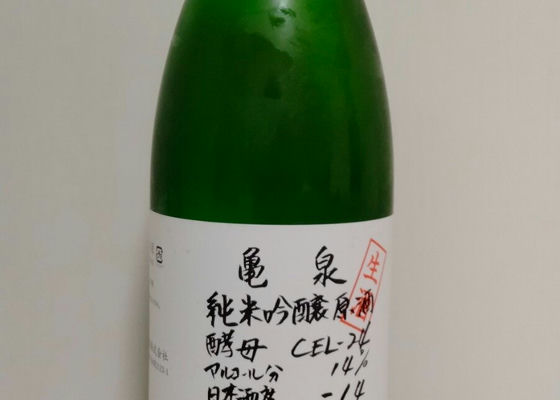 亀泉
生酒
純米吟醸原酒
酵母 CEL-24
アルコール分 14%
日本酒度 -14
株式会社